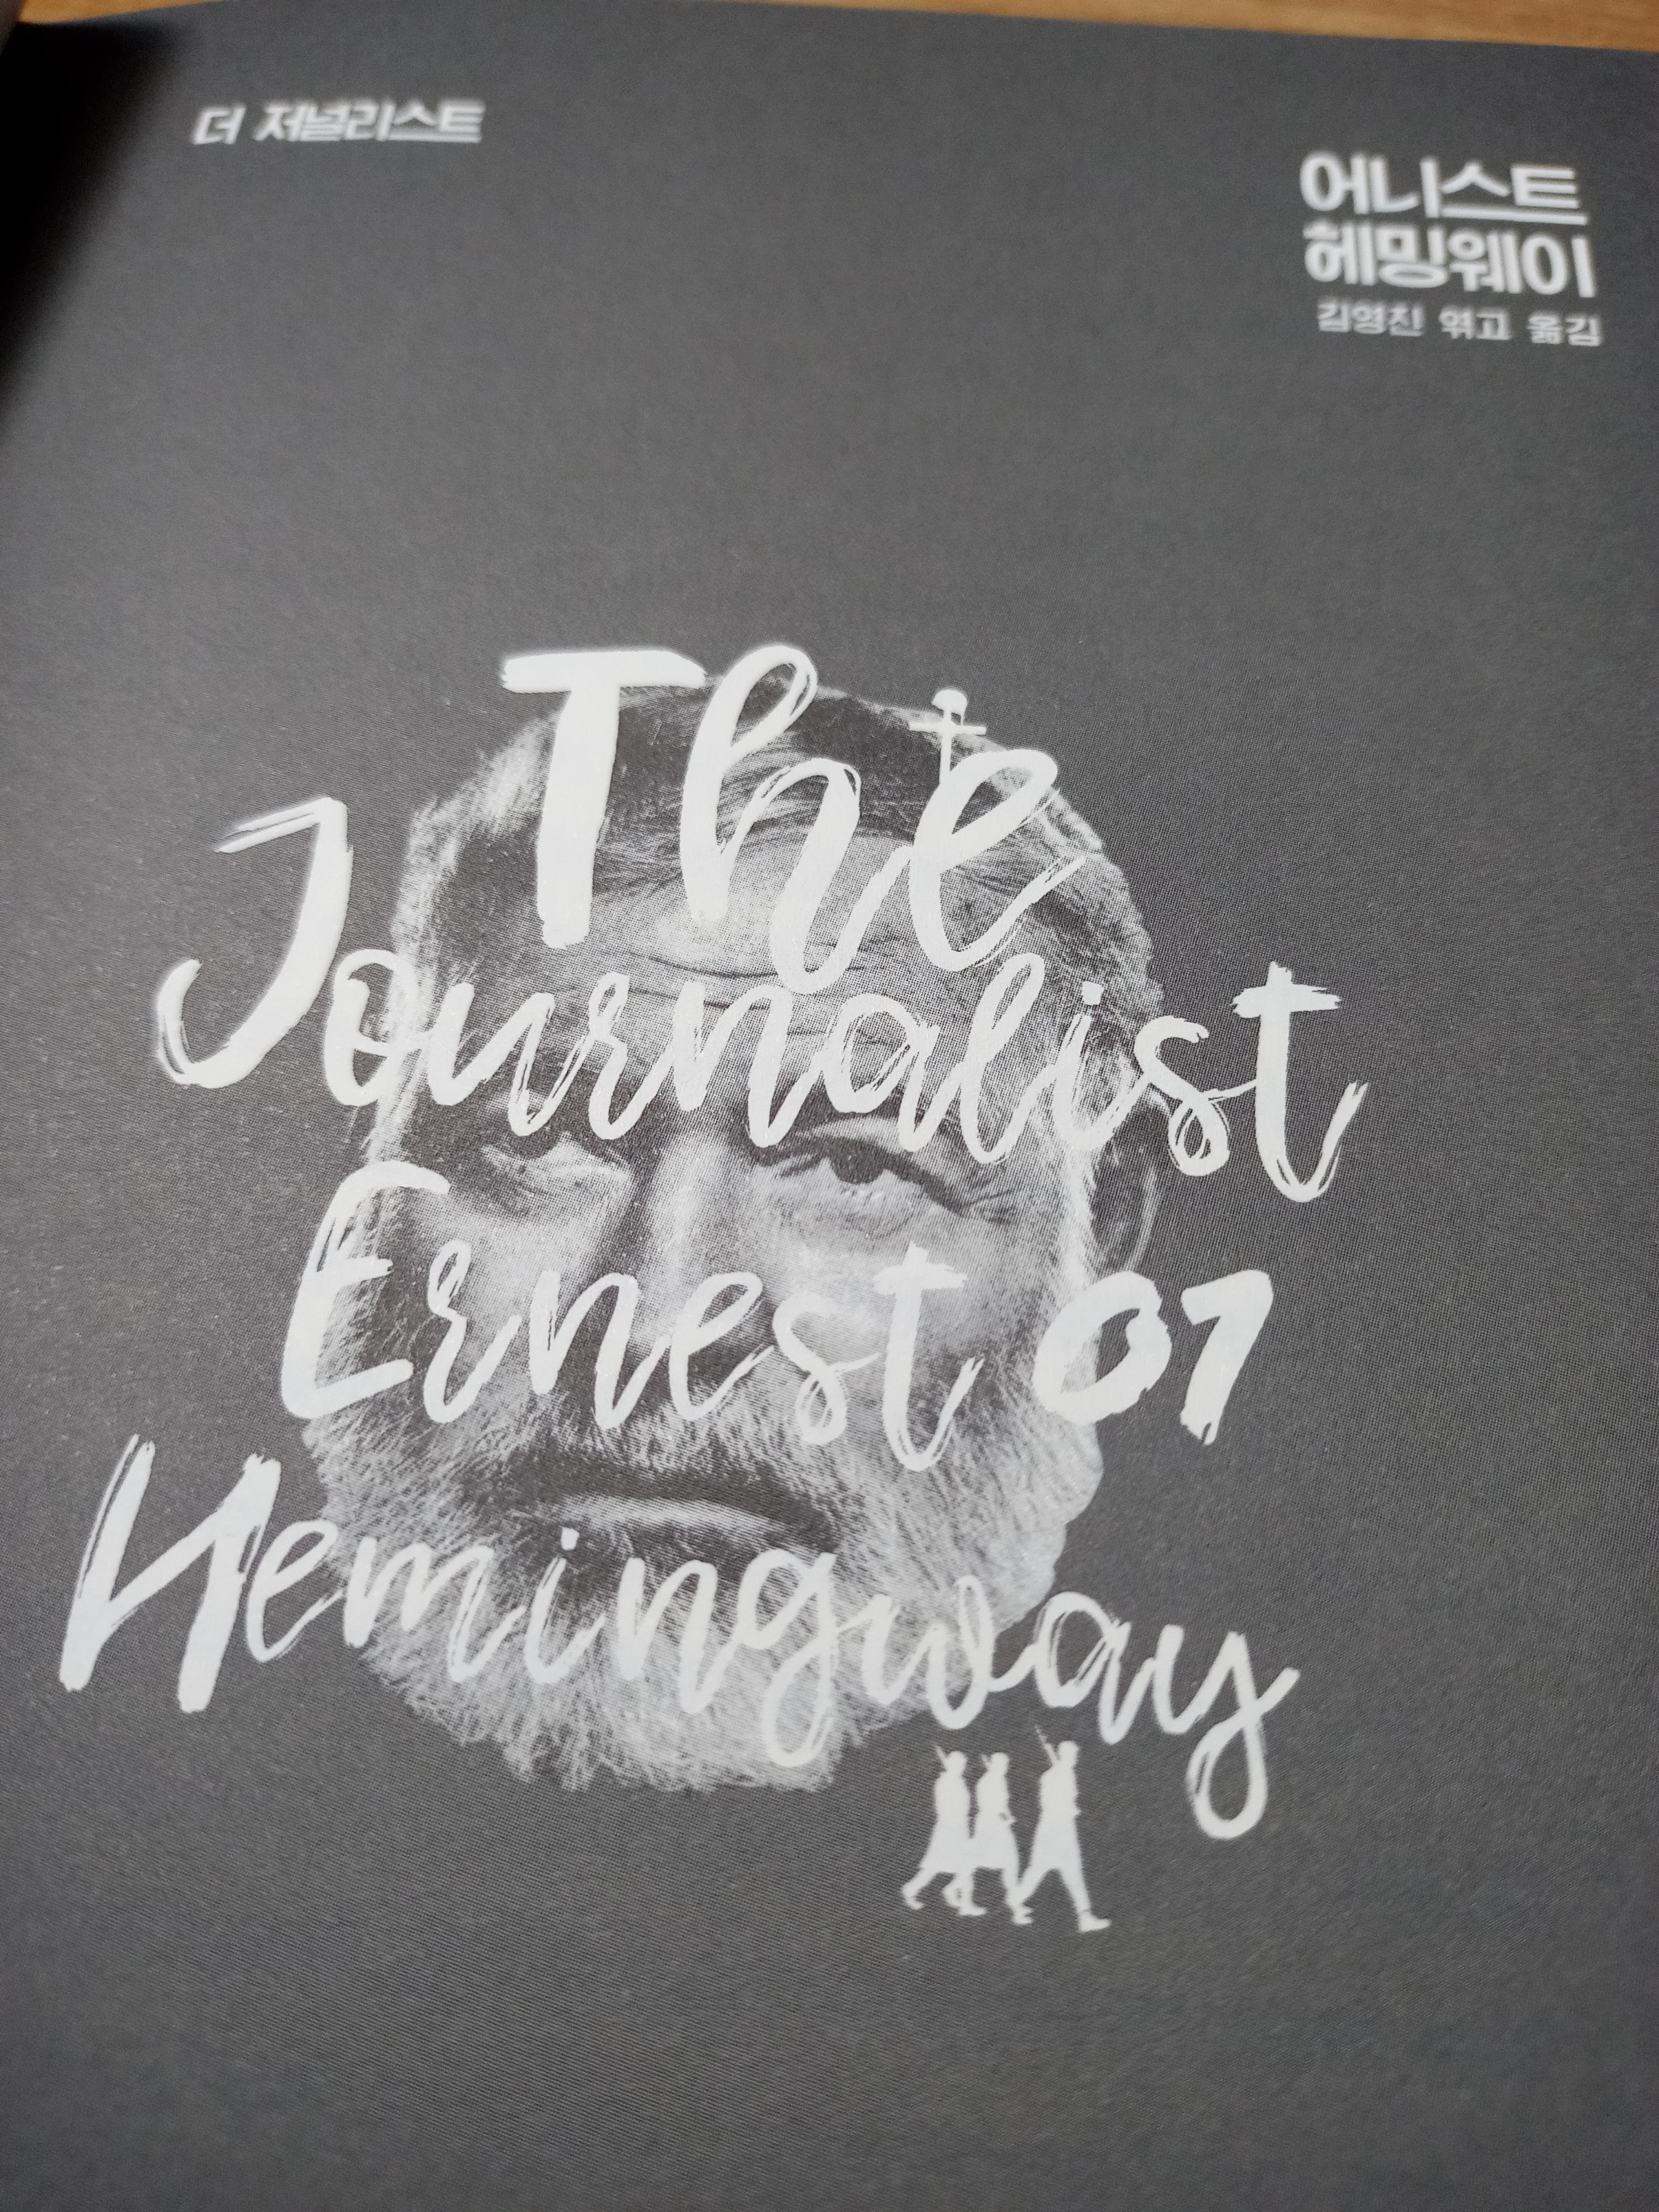 더 저널리스트
어니스트
헤밍웨이
김영진 엮고 옮김
The
Journalist
Ernest 01
Hemingway